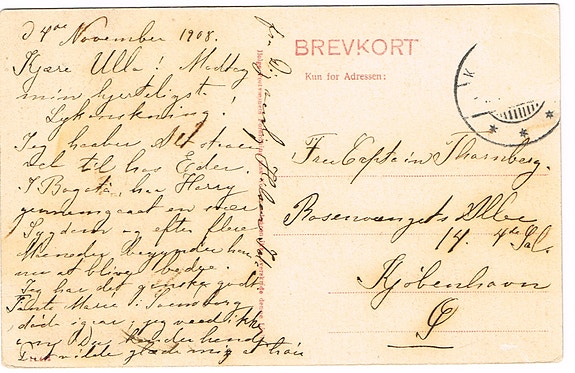 d 4de November 1908.
Kjære Ulla! Modtag
min hjerteligst
Lykønskning!
Jeg haaber Alt staar
vel til hos Eder.
I Bogotá, har Harry
gennemgaaet en svær
Sygdom og efter flere
Maaneder begynder han
nu at blive bedre.
Jeg har det ganske godt
Tante Marie i Svendborg
døde igaar, jeg veed ikke
om Du kender hende
Det vilde glæde mig at høre
fra Dig
BREVKORT
Kun for Adressen:
Fru Captain Thornberg.
Rosenvængets Allee
14. 4de Sal.
Kjøbenhavn
Ø